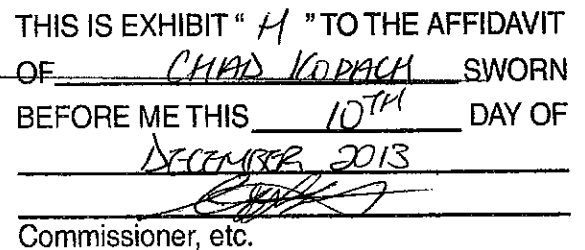 THIS IS EXHIBIT " H " TO THE AFFIDAVIT
OF CHAD KOPACH SWORN
BEFORE ME THIS 10TH DAY OF
DECEMBER 2013
Commissioner, etc.